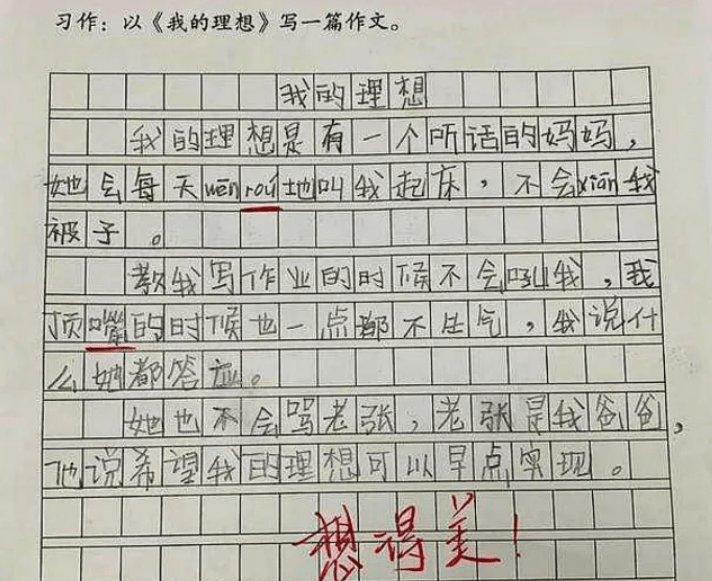 习作：以《我的理想》写一篇作文。
我的理想
我的理想是有一个听话的妈妈，
她会每天wēnroú地叫我起床，不会xiān我
被子。
教我写作业的时候不会吼我，我
顶嘴的时候也一点都不生气，我说什
么她都答应。
她也不会骂老张，老张是我爸爸，
他说希望我的理想可以早点实现。
想得美！